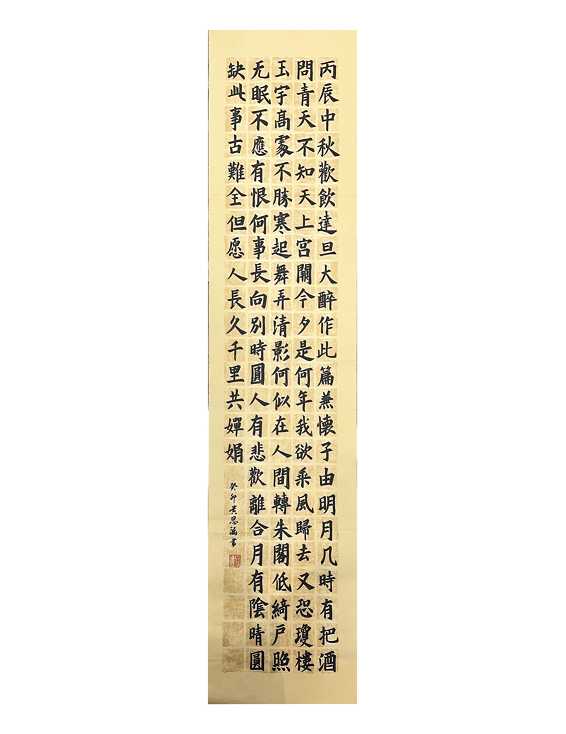 丙辰中秋歡飲達旦大醉作此篇兼懷子由明月几時有把酒
問青天不知天上宮闕今夕是何年我欲乘風歸去又恐瓊樓
玉宇高處不勝寒起舞弄清影何似在人間轉朱閣低綺戶照
无眠不應有恨何事長向別時圓人有悲歡離合月有陰晴圓
缺此事古難全但愿人長久千里共嬋娟
癸卯思書